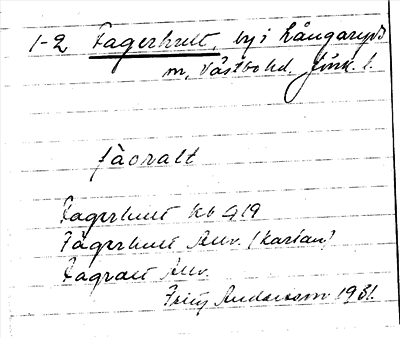 1-2 Fagerhult, by i Långaryds
sn, Västbo hd. Jönk. l.
fàoralt
Fagerhult Kb 419
Fagerhult Allv. (kartan)
Fagralt Allv.
Fritz Andersson 1931.